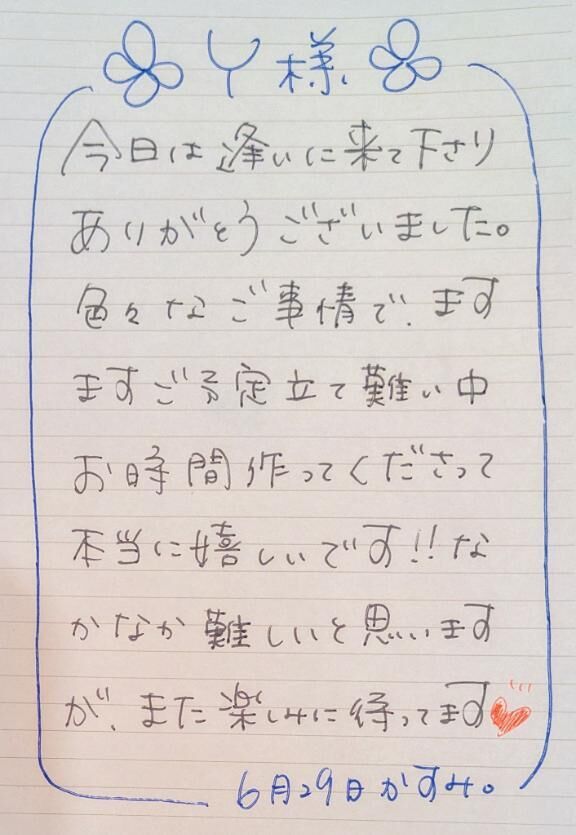 Y様
今日は逢いに来て下さり
ありがとうございました。
色々なご事情で、ます
ますご予定立て難い中
お時間作ってくださって
本当に嬉しいです!!な
かなか難しいと思います
が、また楽しみに待ってます
6月29日かすみ。